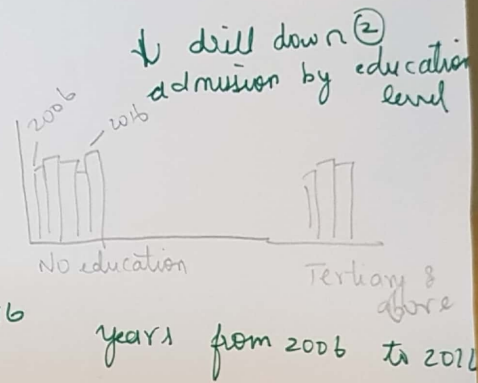 ↓ drill down ②
admission by education
level
2006
2016
No education
Tertiary &
above
6
years from 2006 to 201